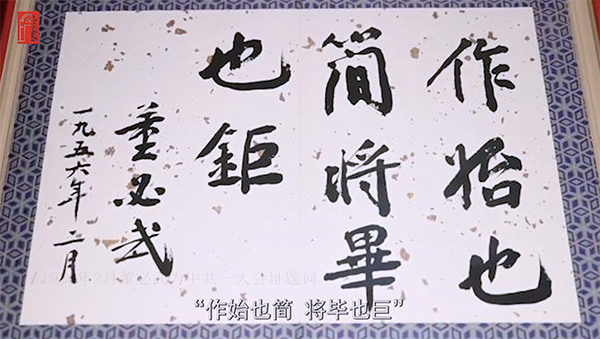 作始也
簡將畢
也鉅
董必武
一九五六年二月
/ 1956年2月董必武为中共一大会址题词
“作始也简 将毕也巨”